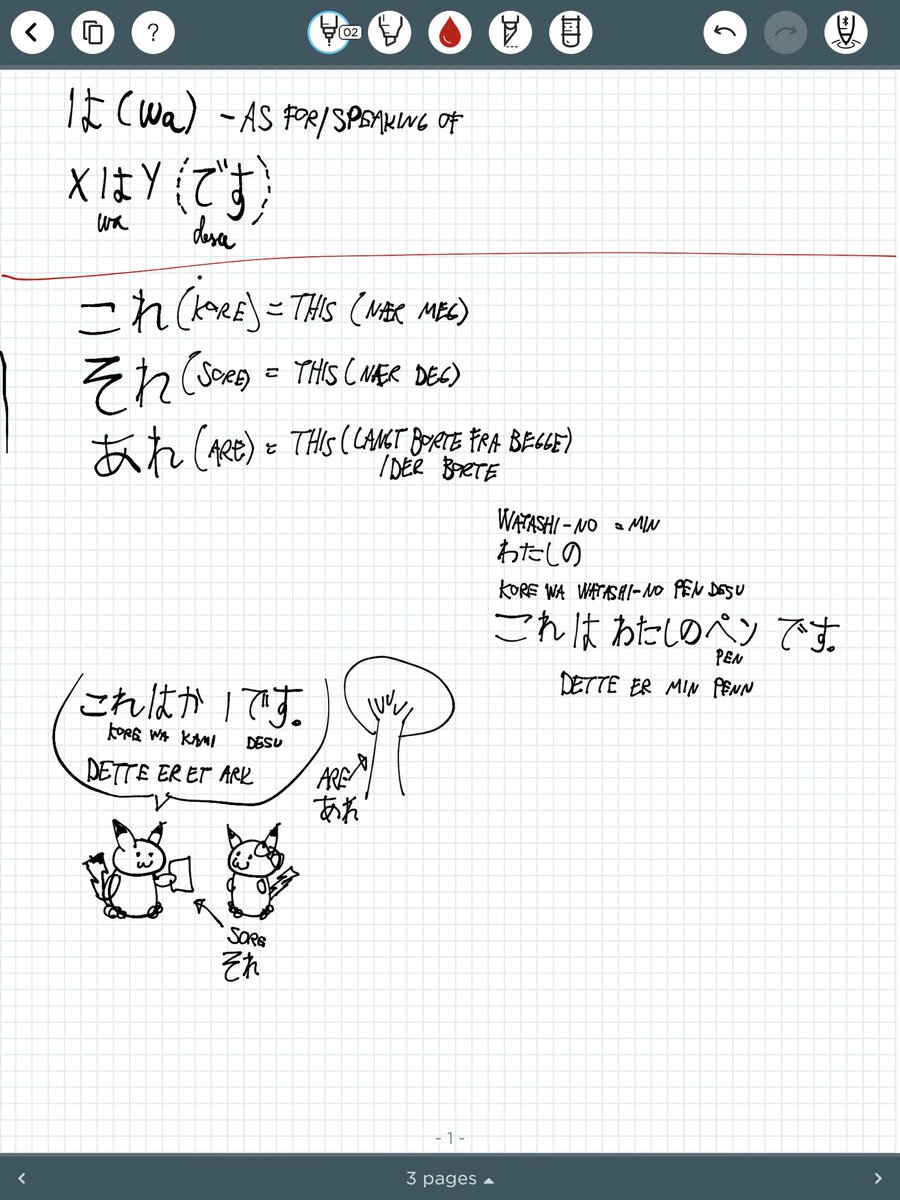 ?
02
は (wa) - AS FOR/SPEAKING OF
X は Y (です)
wa desu
これ (KORE) = THIS (NÆR MEG)
それ (SORE) = THIS (NÆR DEG)
あれ (ARE) = THIS (LANGT BORTE FRA BEGGE)
/DER BORTE
WATASHI-NO = MIN
わたしの
KORE WA WATASHI-NO PEN DESU
これは わたしのペン です。
PEN
DETTE ER MIN PENN
これはか | です。
KORE WA KAMI DESU
DETTE ER ET ARK
ARE
あれ
SORE
それ
- 1 -
3 pages